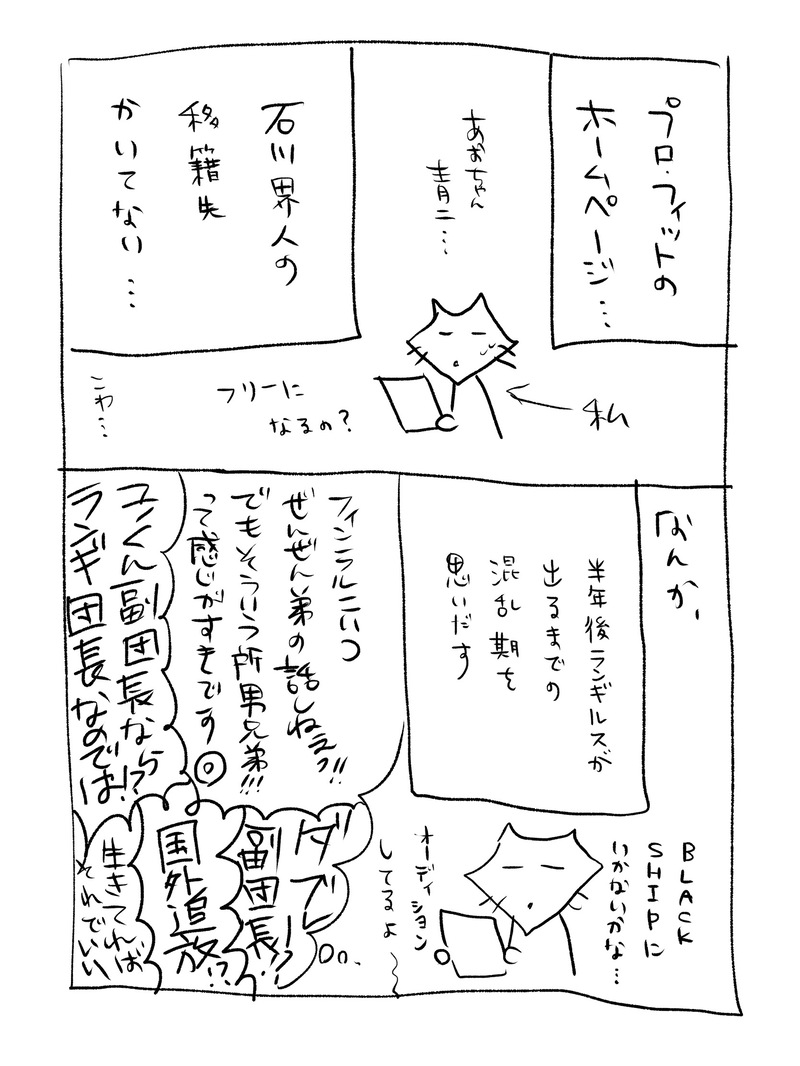 プロ・フィットの
ホームページ…
あおちゃん
青二…
石川界人の
移籍先
かいてない…
私
フリーに
なるの?
こわ…
なんか、
半年後ランギルスが
出るまでの
混乱期を
思いだす
BLACK
SHIPに
いかないかな…
オーディション
してるよ
フィンラルこいつ
ぜんぜん弟の話しねえっ!!
でもそういう所男兄弟!!!
って感じがすきです◎
ユノくん副団長なら
ランギ団長なのでは!?
ダブ
副団長!?
国外追放!?
生きてれば
それでいい